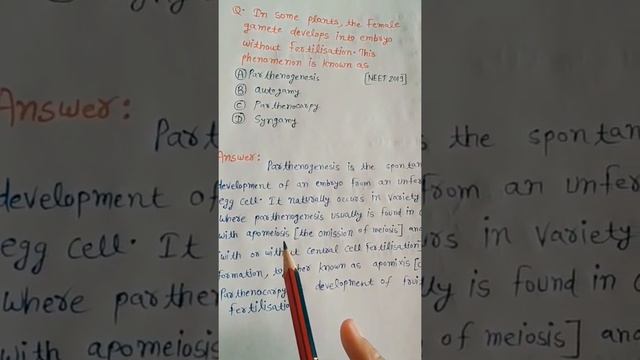 Q. In some plants, the female
gamete develops into embryo
without fertilisation. This
phenomenon is known as
Ⓐ Parthenogenesis [NEET 2019]
Ⓑ autogamy
Ⓒ Parthenocarpy
Ⓓ Syngamy
Answer:
Parthenogenesis is the spontan
development of an embryo from an unfer
egg cell. It naturally occurs in variety
where parthenogenesis usually is found in
with apomeiosis [the omission of meiosis] and
with or without central cell fertilisation
formation, known as apomixis
Parthenocarpy development of fruit
fertilisation